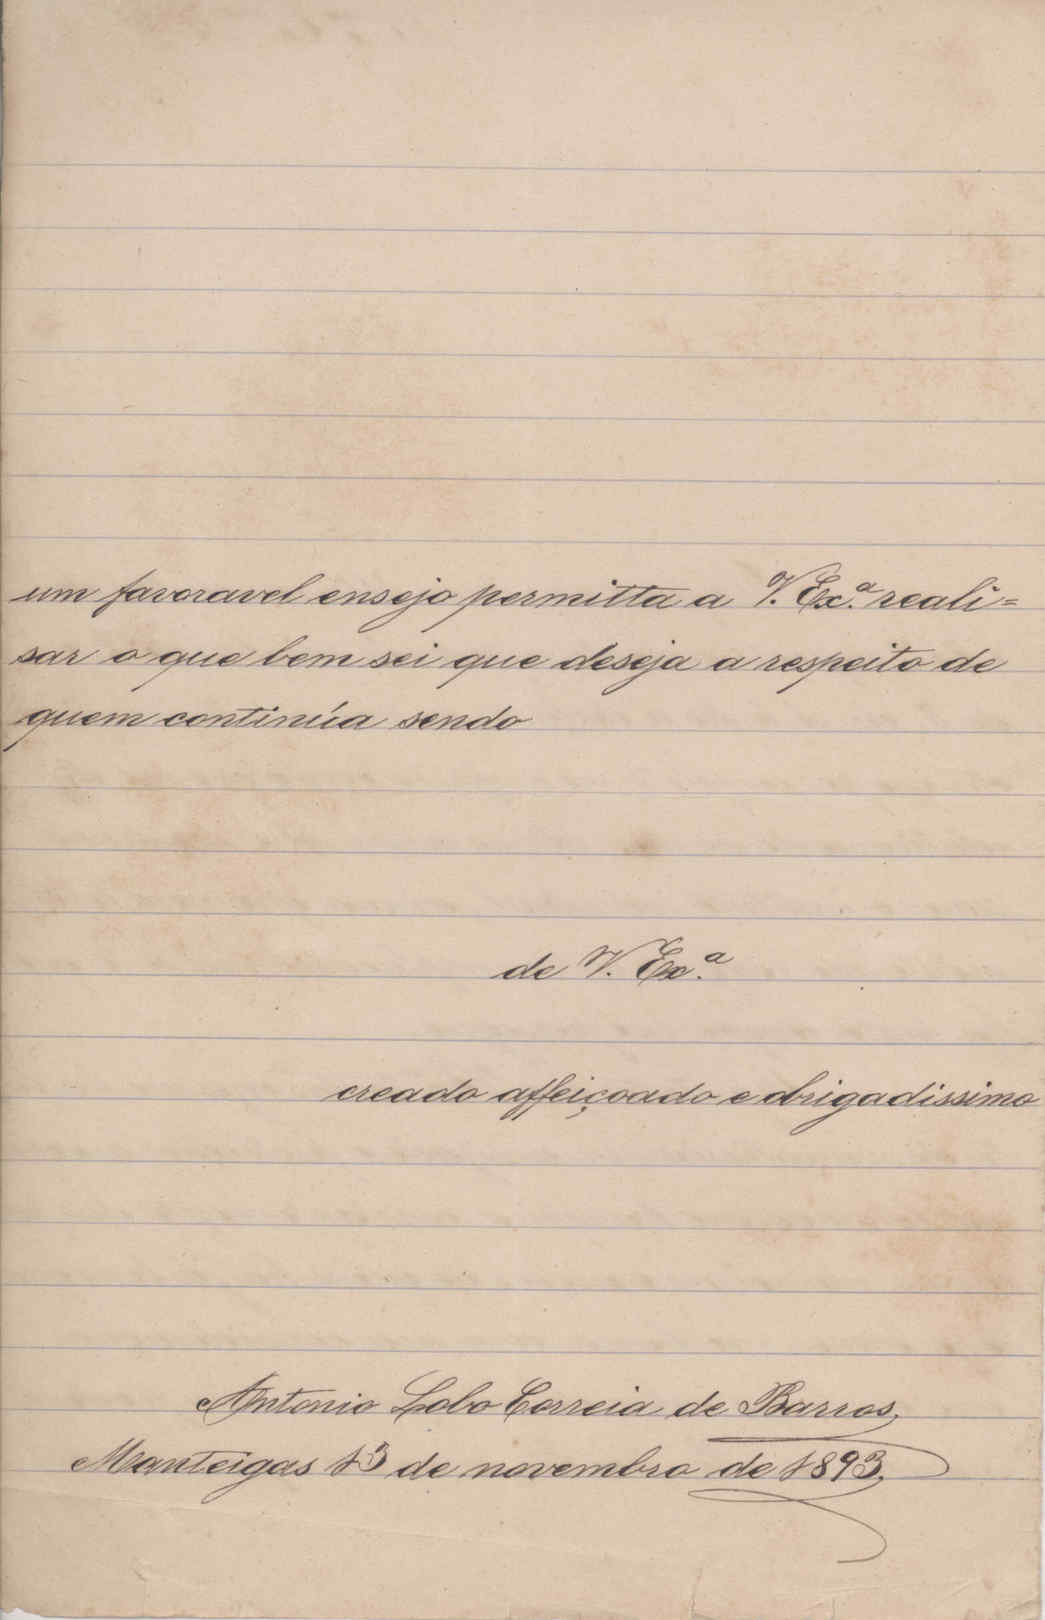 um favoravel ensejo permitta a V. Ex.ª reali=
sar o que bem sei que deseja a respeito de
quem continúa sendo
de V. Ex.ª
creado affeiçoado e obrigadissimo
Antonio Lobo Correia de Barros,
Manteigas 13 de novembro de 1893.